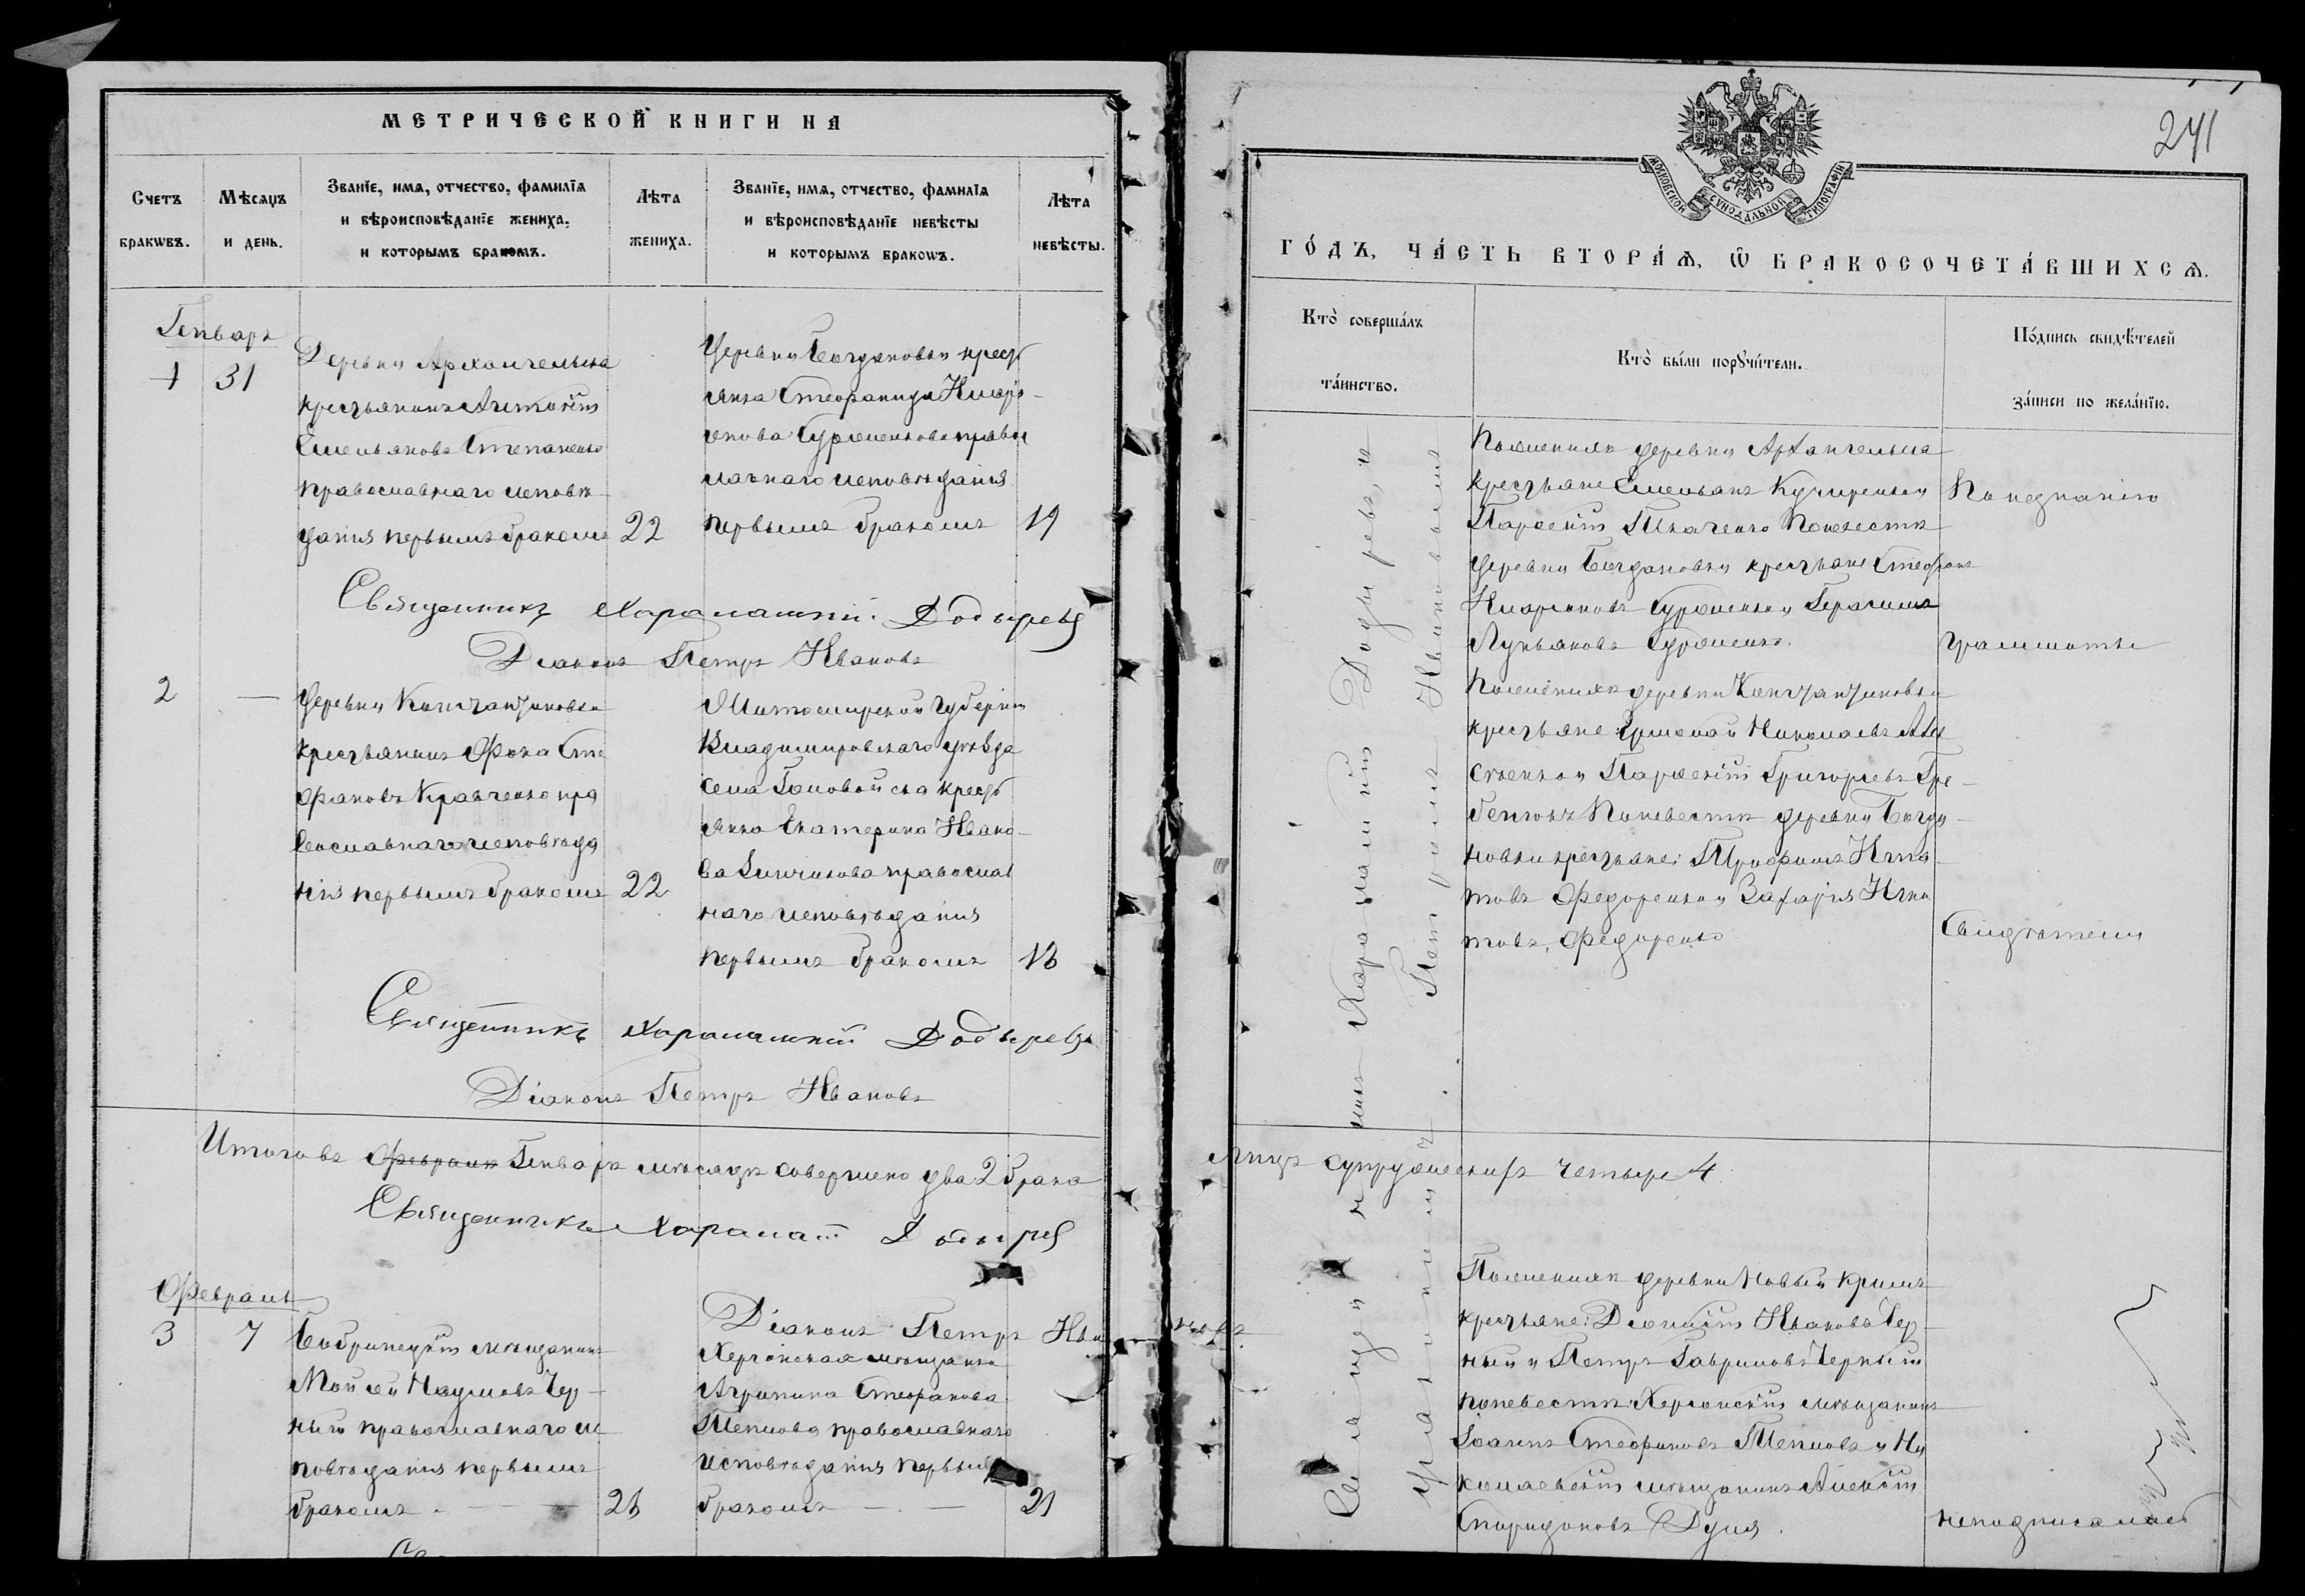 МЕТРИЧЕСКОЙ КНИГИ НА
Счетъ бракѡвъ.
Мѣсяцъ и день.
Званїе, имя, отчество, фамилїя
и вѣроисповѣданїе жениха.
и которымъ бракомъ.
Лѣта жениха.
Званїе, имя, отчество, фамилїя
и вѣроисповѣданїе невѣсты
и которымъ бракомъ.
Лѣта невѣсты.
Генварь
1 31
Деревни Архангельска
крестьянинъ
Емельяновъ Степаненко
православнаго исповѣ-
данія первымъ бракомъ 22
Деревни Богдановки крест
янка Стефанида Иларі-
онова православ
наго исповѣданія
первымъ бракомъ 19
Священникъ Харалампій Додыревъ
Діаконъ Петръ Ивановъ
2 —
Деревни Константиновки
крестьянинъ Фока Сте
фановъ Кравченко пра
вославнаго исповѣда
нія первымъ бракомъ 22
Житомирской губерніи
Владимировскаго уѣзда
села крест
янка Екатерина Ивано-
ва православ
наго исповѣданія
первымъ бракомъ 18
Священникъ Харалампій Додыревъ
Діаконъ Петръ Ивановъ
Итого въ Февралѣ Генварѣ мѣсяцѣ совершено два 2 брака
Священникъ Харалам. Додырев
Февраль
3 7
Бобринецкій мѣщанинъ
Моисей Наумовъ Чер-
ный православнаго ис
повѣданія первымъ
бракомъ — 26
Діаконъ Петръ Ива
Херсонская мѣщанка
Агрипина Стефанова
Теплова православнаго
исповѣданія первымъ
бракомъ — 21
241
МОСКОВСКОЙ СѴНОДАЛЬНОЙ ТИПОГРАФІИ
ГО́ДЪ, ЧА́СТЬ ВТОРА́Ѧ, Ѿ БРАКОСОЧЕТА́ВШИХСѦ.
Кто̀ соверша́лъ
та́инство.
Кто̀ бы́ли порꙋчи́тели.
По́дпись свидѣ́телей
за́писи по жела́нїю.
Священникъ Харалампій Додыревъ, и
Петромъ Ивановымъ
По женихѣ деревни Архангельска
крестьяне Емельянъ Кучеренко и
Парфеній Ткаченко По невестѣ
деревни Богдановки крестьяне Стефанъ
Иларіоновъ и Герасимъ
Лукьяновъ
По незнанію
грамматы
По женихѣ деревни Константиновки
крестьяне: Ермолай Николаевъ
и Парфеній Григорьевъ Гре-
По невестѣ деревни Богда
новки крестьяне: Трифонъ Игна
товъ Федоренко и Захарія Игна
товъ Федоренко
Свидѣтели
лицъ супружескихъ четыре 4.
новъ
По женихѣ деревни Новый Кримъ
крестьяне: Діонисій Ивановъ Чер-
ный и Петръ Гавриловъ Черный
по невестѣ: Херсонскій мѣщанинъ
Іоаннъ Стефановъ Тепловъ и Ни
колаевскій мѣщанинъ Алексій
Спиридоновъ Дуля.
неподписались